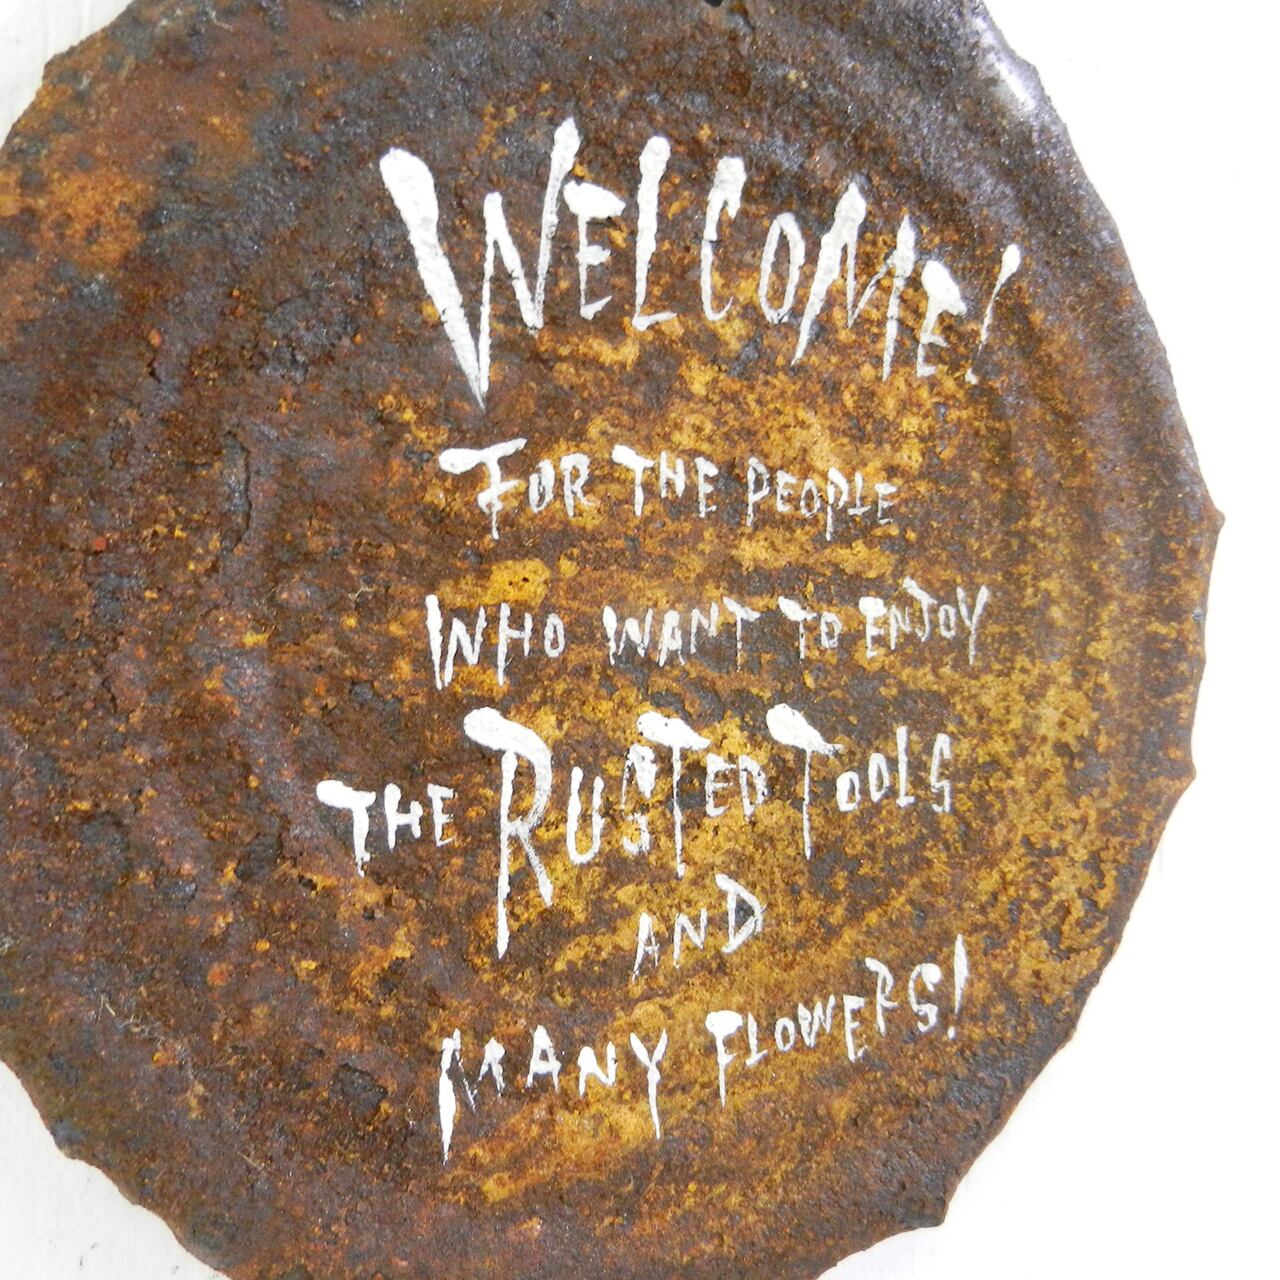 WELCOME!
FOR THE PEOPLE
WHO WANT TO ENJOY
THE RUSTED TOOLS
AND
MANY FLOWERS!